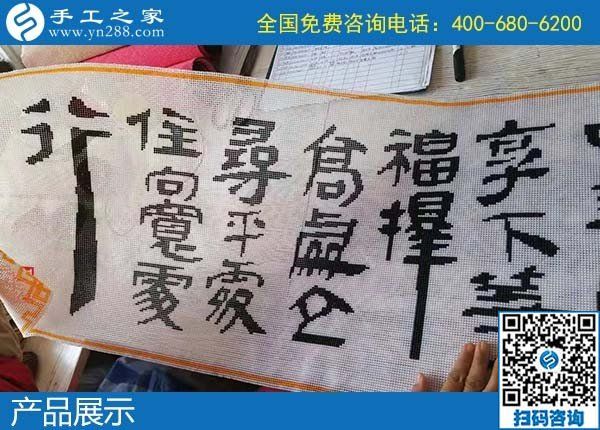 手工之家
www.yn288.com
全国免费咨询电话:400-680-6200
享下等
福擇
高處立
尋平處
住向寬處
行
产品展示
扫码咨询